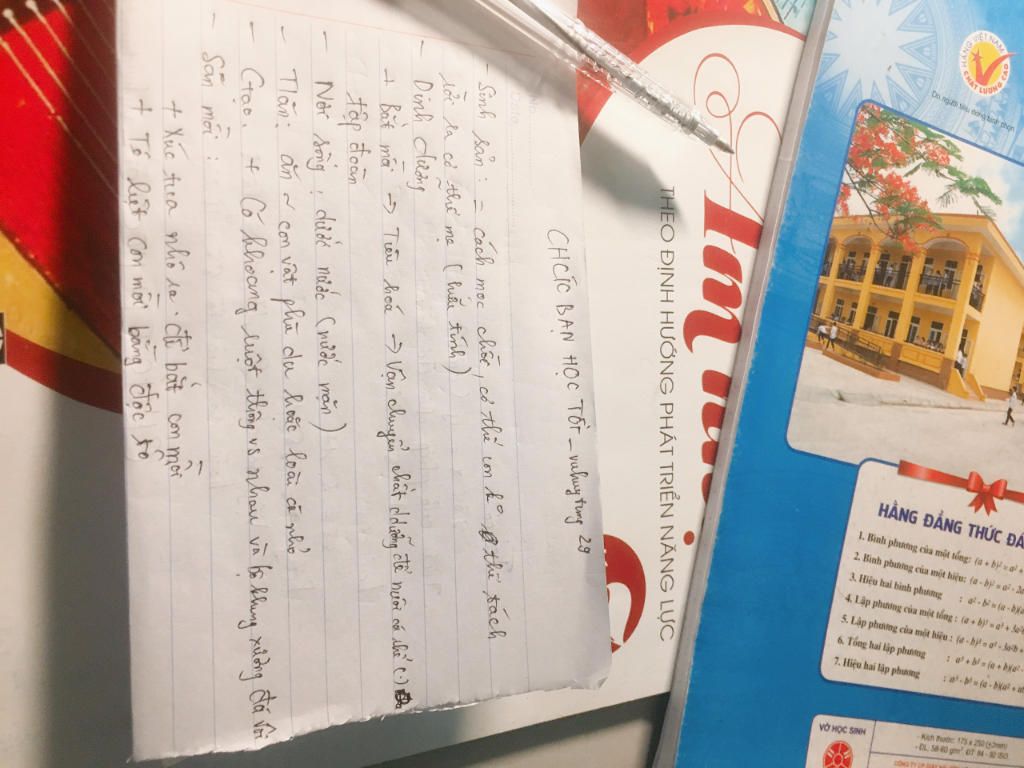 CHÚC BẠN HỌC TỐT - vuhuytung 29
- Sinh sản: = cách mọc chồi, cơ thể con k° thể tách
rời ra cơ thể mẹ (hữu tính)
- Dinh dưỡng
+ Bắt mồi → Tiêu hoá → Vận chuyển chất dưỡng để nuôi cơ thể (-)
tập đoàn
- Nơi sống: dưới nước (nước mặn)
- Tlăn: ăn ~ con vật phù du hoặc loài cá nhỏ
- Ctạo: + Có khoang ruột thông vs nhau và bộ khung xương đá vôi
- Săn mồi:
+ Xúc tua nhô ra để bắt con mồi
+ Tê liệt con mồi bằng độc tố
In
THEO ĐỊNH HƯỚNG PHÁT TRIỂN NĂNG LỰC
HÀNG VIỆT NAM
CHẤT LƯỢNG CAO
Do người tiêu dùng bình chọn
HẰNG ĐẲNG THỨC ĐÁ
1. Bình phương của một tổng: (a + b)² = a² +
2. Bình phương của một hiệu: (a - b)² = a² - 2a
3. Hiệu hai bình phương : a² - b² = (a - b)(a
4. Lập phương của một tổng : (a + b)³ = a³ + 3a²
5. Lập phương của một hiệu : (a - b)³ = a³ - 3a²b
6. Tổng hai lập phương : a³ + b³ = (a + b)(a²
7. Hiệu hai lập phương : a³ - b³ = (a - b)(a² + ab
VỞ HỌC SINH
- Kích thước: 175 x 250 (±2mm)
- ĐL: 58-60 g/m². ĐT: 84 - 92 ISO